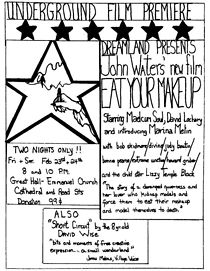 UNDERGROUND FILM PREMIERE
DREAMLAND PRESENTS
John Waters' new film
EAT YOUR MAKEUP
Starring Maelcum Soul, David Lochary
and introducing Marina Melin
with bob skidmore/divine/judy boutin/
bonnie pearce/extreme unction/howard gruber/
and the child star Lizzy Temple Black
The story of a deranged governess and
her lover who kidnap models and
force them to eat their makeup
and model themselves to death.
TWO NIGHTS ONLY!!
Fri + Sat. Feb 23rd + 24th
8 and 10 P.M.
Great Hall - Emmanuel Church
Cathedral and Read Sts
Donation 99¢
ALSO
"Short Circuit" by the 8 yr old
DAVID WISE
"bits and moments of free creative
expression... a small wonderland"
Jonas Mekas, Village Voice